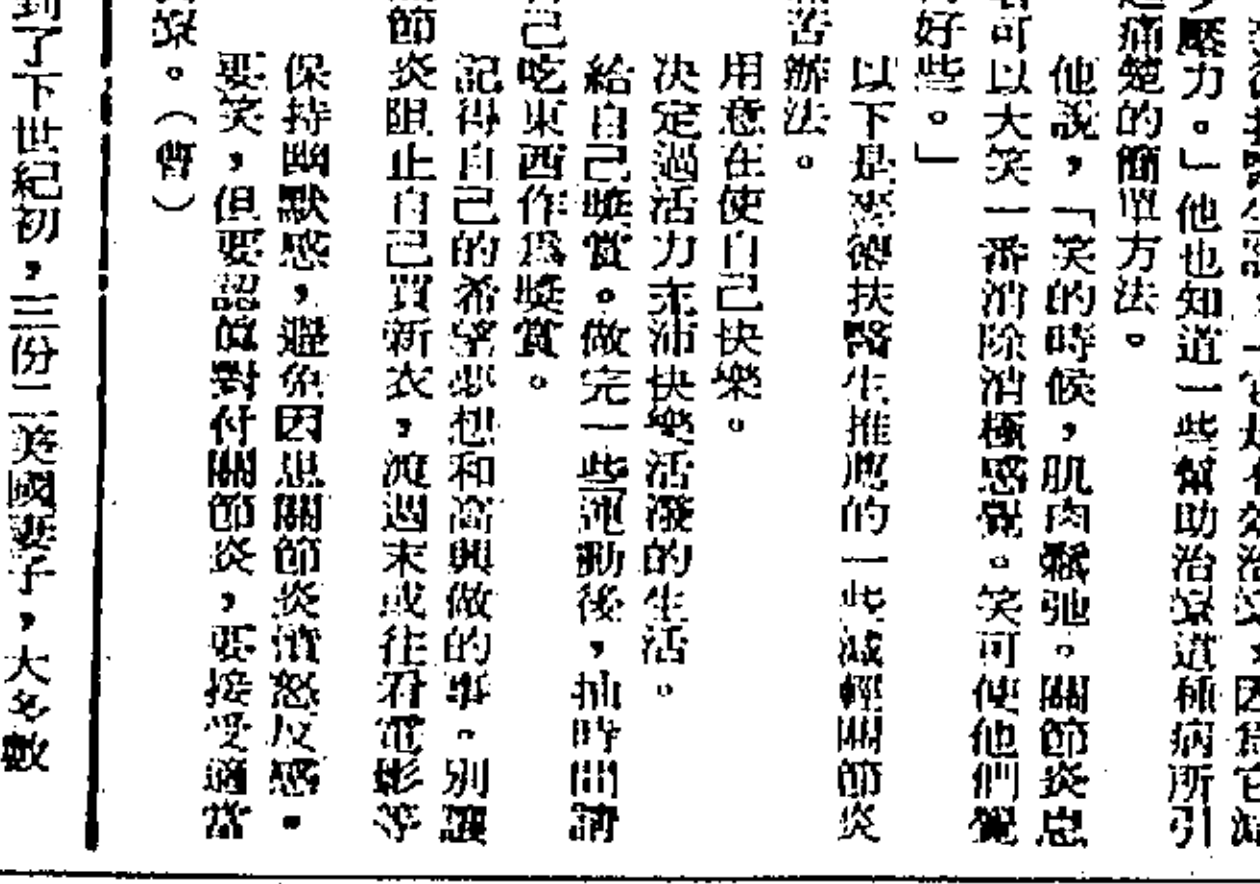 少壓力。」他也知道一些幫助治療這種病所引
起痛楚的簡單方法。
他說，「笑的時候，肌肉鬆弛。關節炎患
者可以大笑一番消除消極感覺。笑可使他們覺
得好些。」
以下是麥德扶醫生推薦的一些減輕關節炎
痛苦辦法。
用意在使自己快樂。
決定過活力充沛快樂活潑的生活。
給自己獎賞。做完一些運動後，抽時間請
自己吃東西作為獎賞。
記得自己的希望夢想和高興做的事。別讓
關節炎阻止自己買新衣，渡週末或往看電影等
保持幽默感，避免因患關節炎憤怒反感。
要笑，但要認真對付關節炎，要接受適當
治療。（曹）
到了下世紀初，三份二美國妻子，大多數